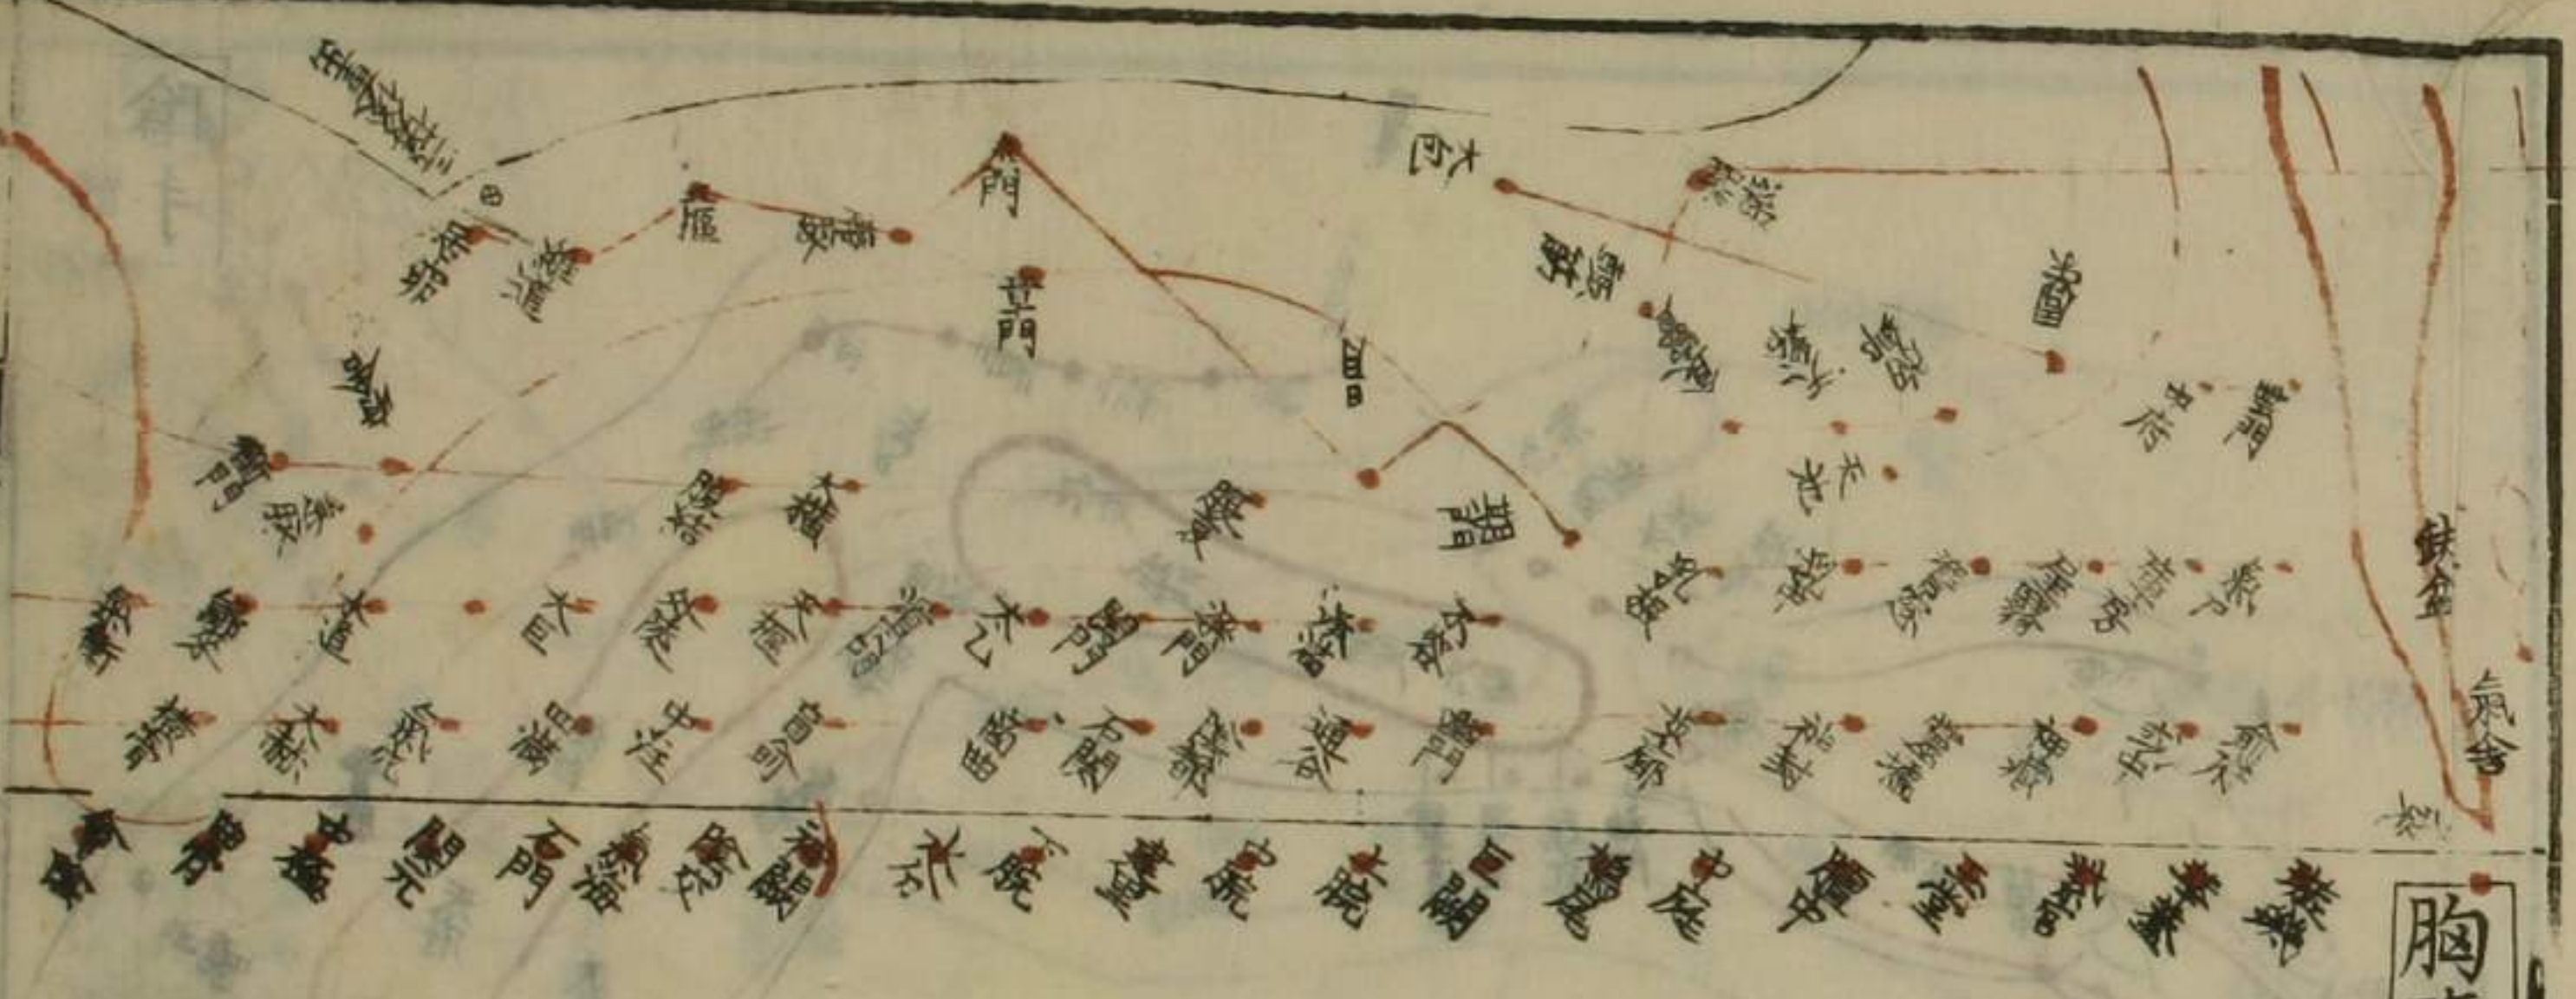 胸
缺盆
氣舍
璇璣
華蓋
紫宮
玉堂
膻中
中庭
鳩尾
巨闕
上脘
中脘
建里
下脘
水分
神闕
陰交
氣海
石門
關元
中極
曲骨
會陰
俞府
彧中
神藏
靈墟
神封
步廊
幽門
通谷
陰都
石關
商曲
肓俞
中注
四滿
氣穴
大赫
橫骨
氣戶
庫房
屋翳
膺窓
乳中
乳根
不容
承滿
梁門
關門
太乙
滑肉門
天樞
外陵
大巨
水道
歸來
氣衝
雲門
中府
周榮
胸鄉
天谿
食竇
天池
大包
淵液
輒筋
期門
日月
腹哀
大橫
腹結
府舍
衝門
章門
京門
帶脈
五樞
維道
居髎